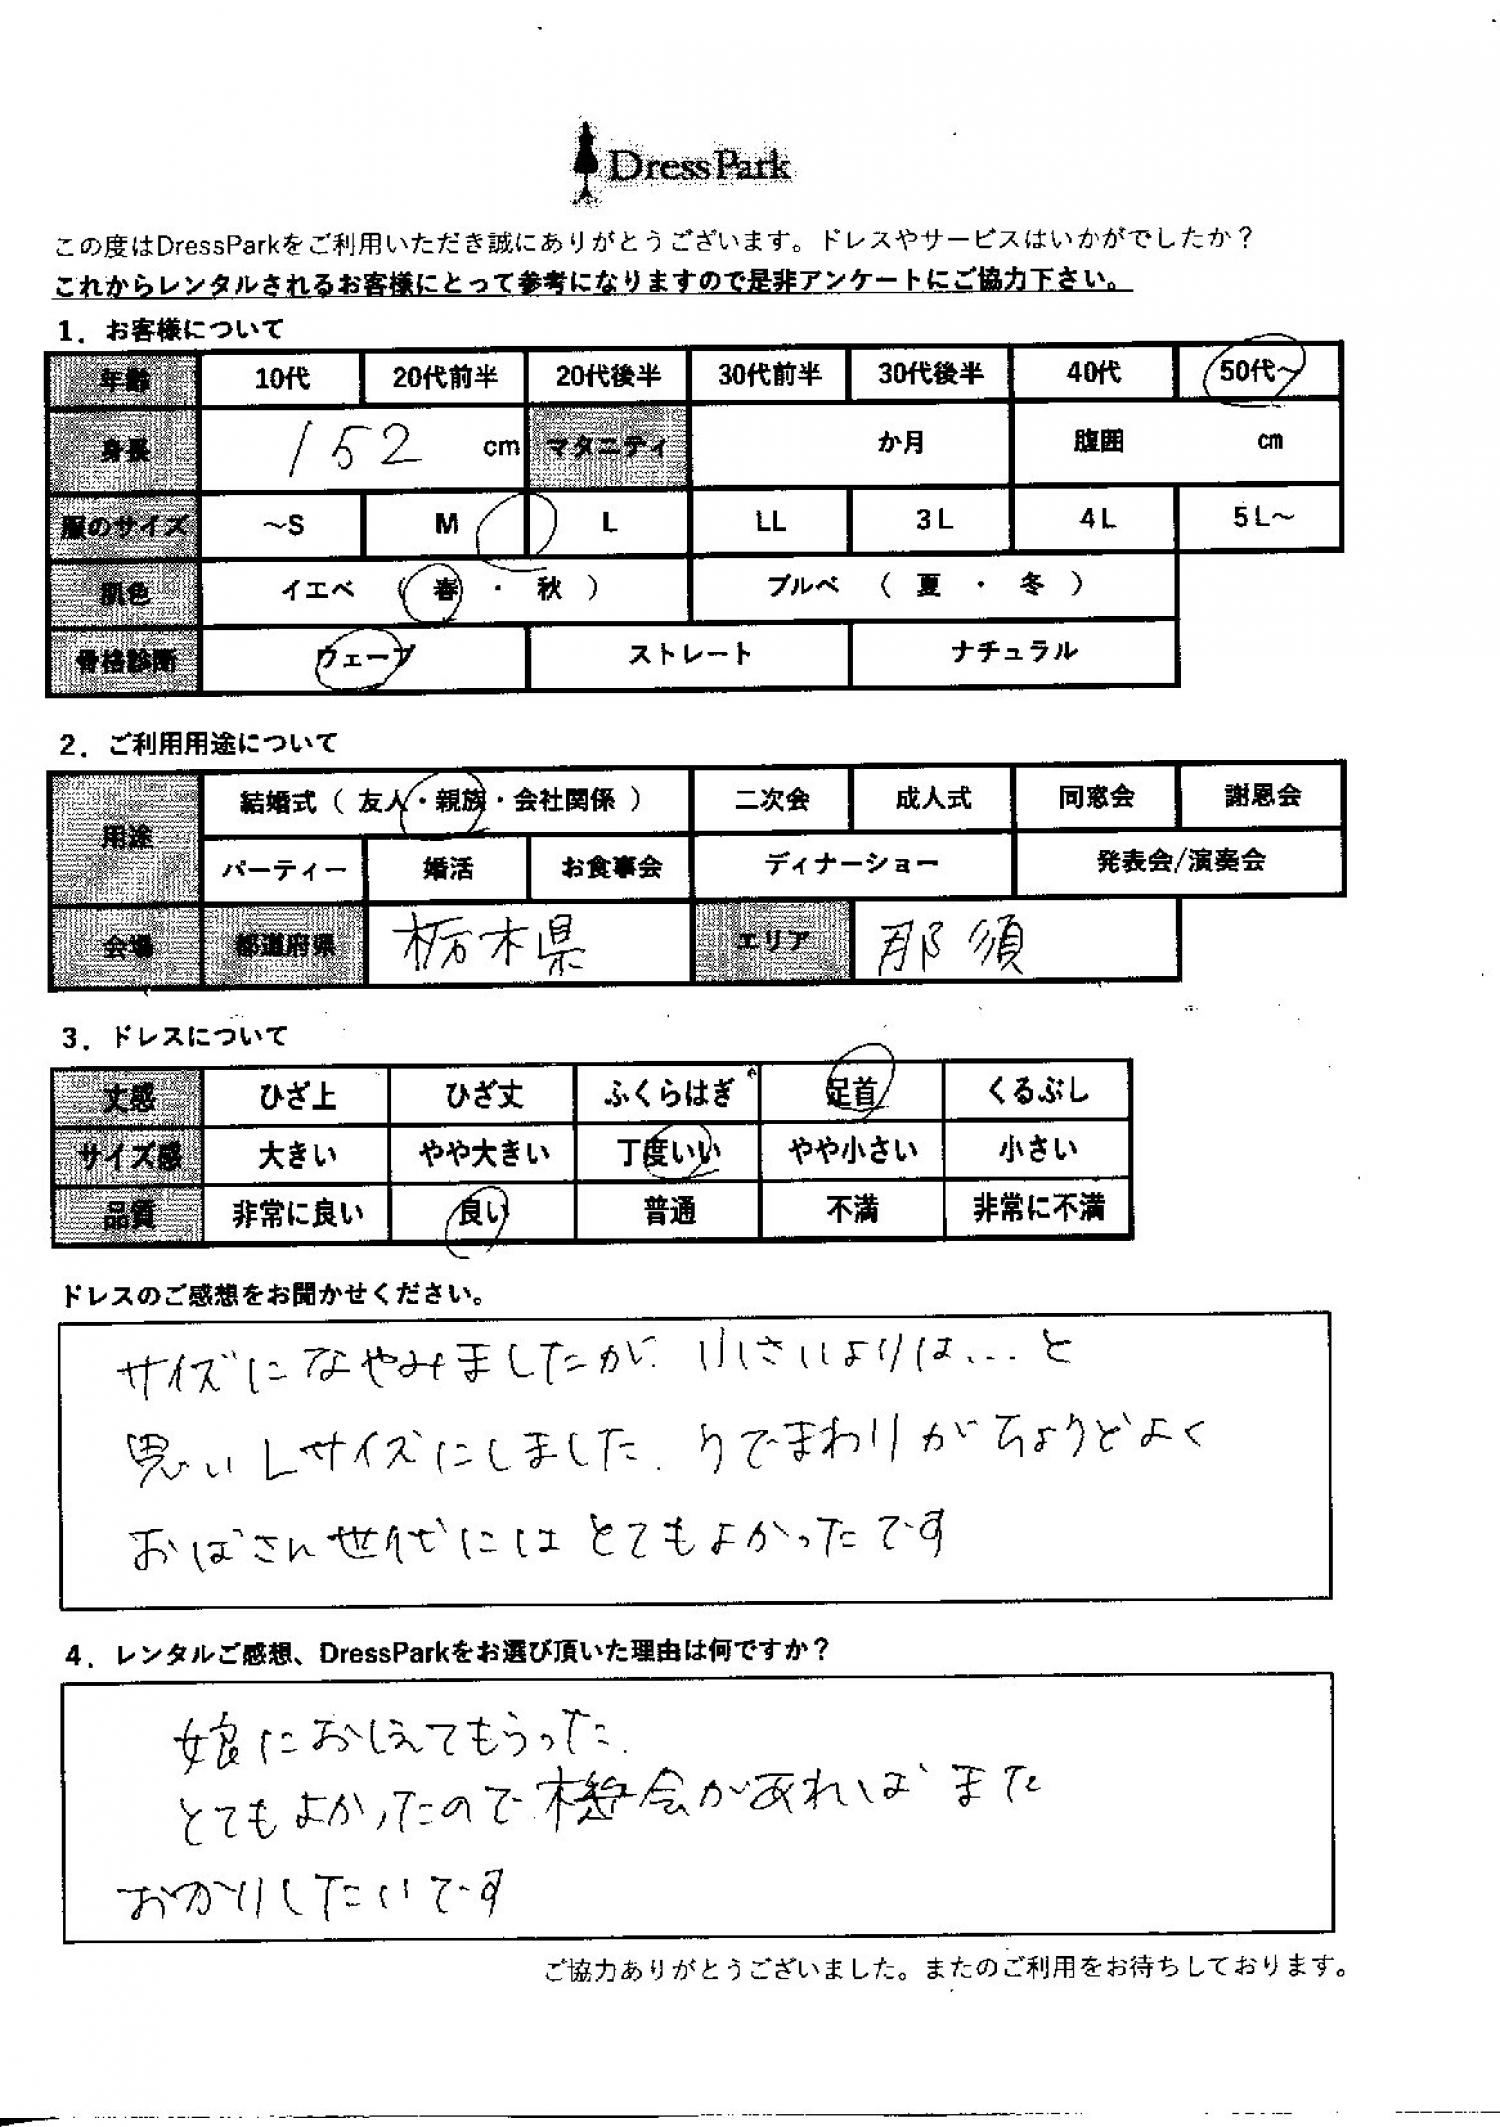 DressPark
この度はDressParkをご利用いただき誠にありがとうございます。ドレスやサービスはいかがでしたか？
これからレンタルされるお客様にとって参考になりますので是非アンケートにご協力下さい。
1．お客様について
年齢 10代 20代前半 20代後半 30代前半 30代後半 40代 50代～
身長 152 cm マタニティ か月 腹囲 cm
服のサイズ ～S M L LL 3L 4L 5L～
肌色 イエベ （ 春 ・ 秋 ） ブルベ （ 夏 ・ 冬 ）
骨格診断 ウェーブ ストレート ナチュラル
2．ご利用用途について
用途 結婚式（ 友人・親族・会社関係 ） 二次会 成人式 同窓会 謝恩会
パーティー 婚活 お食事会 ディナーショー 発表会/演奏会
会場 都道府県 栃木県 エリア 那須
3．ドレスについて
丈感 ひざ上 ひざ丈 ふくらはぎ 足首 くるぶし
サイズ感 大きい やや大きい 丁度いい やや小さい 小さい
品質 非常に良い 良い 普通 不満 非常に不満
ドレスのご感想をお聞かせください。
サイズになやみましたが、小さいよりは...と
思い Lサイズにしました。うでまわりがちょうどよく
おばさん世代にはとてもよかったです
4．レンタルご感想、DressParkをお選び頂いた理由は何ですか？
娘におしえてもらった。
とてもよかったので機会があればまた
おかりしたいです
ご協力ありがとうございました。またのご利用をお待ちしております。